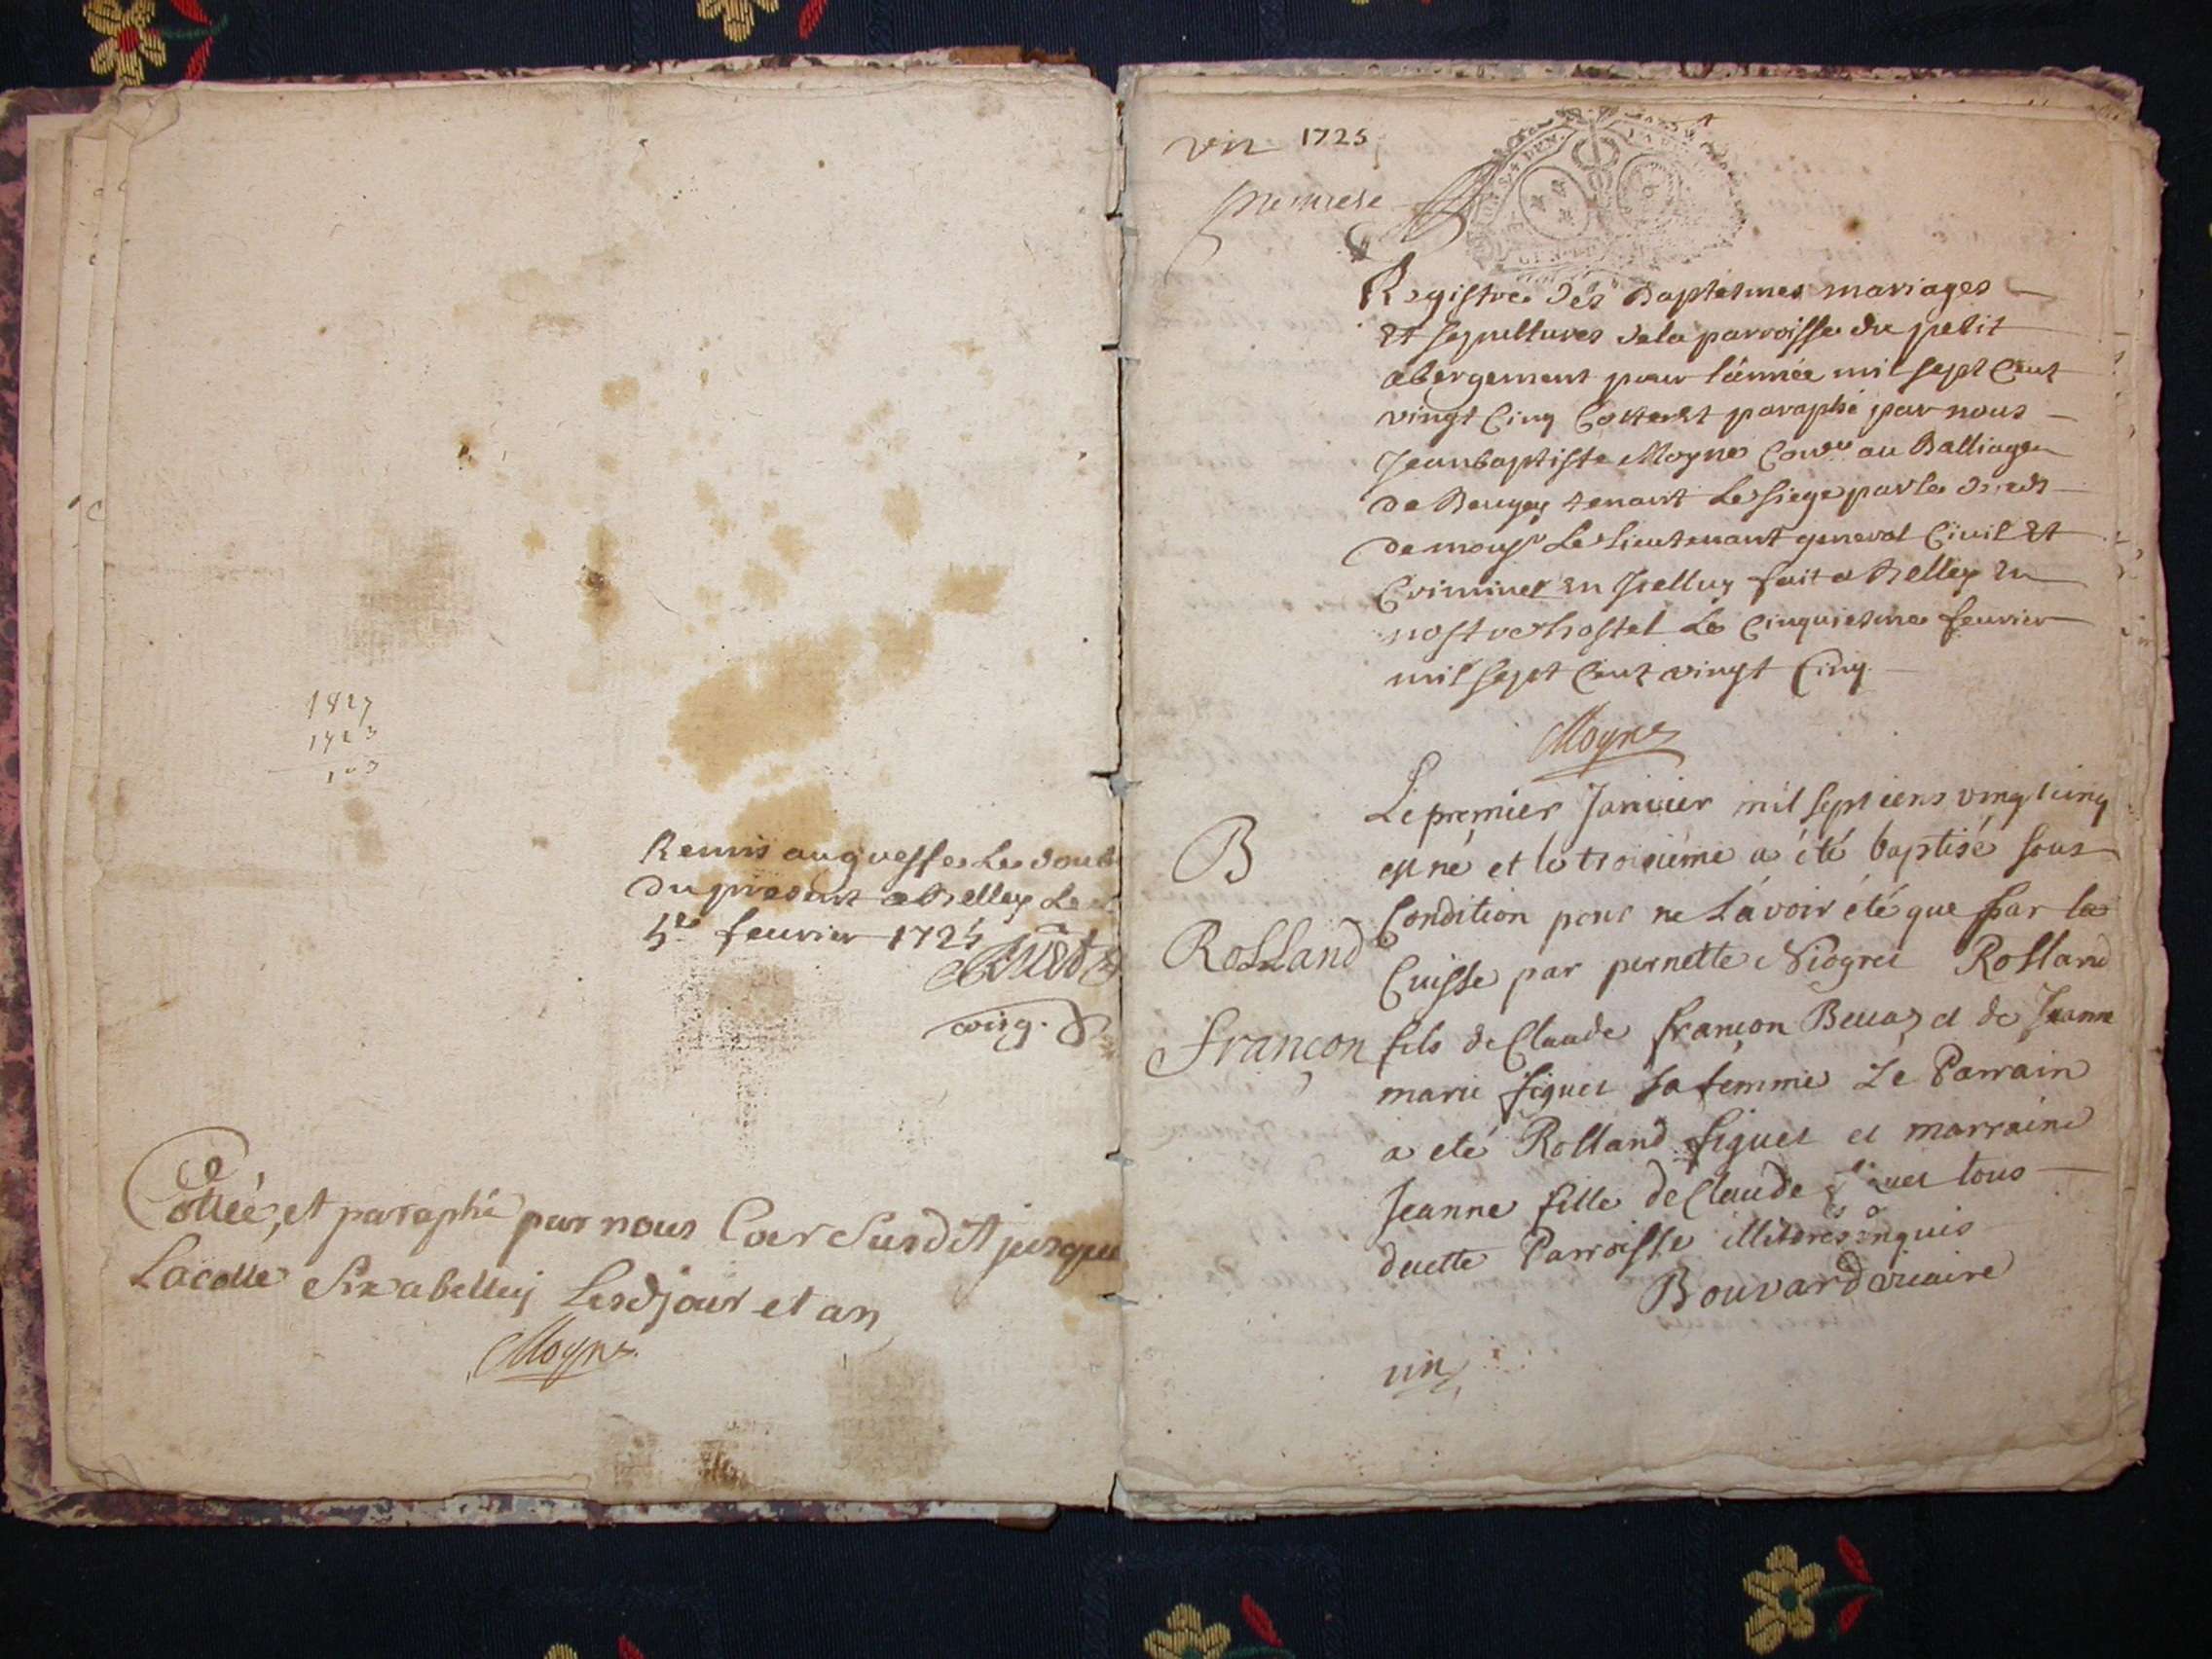 1827
1723
103
Remis au greffe Le doub
du present a Belley Le
5e feurier 1725
Cottée, et paraphé par nous Coer Susdit jusque
Lacotte Six abelley Lesdjour et an
Moyne
1725
premiere
Registre des Baptesmes mariages
Et sepultures dela parroisse du petit
abergement pour l'année mil sept Cent
vingt Cinq Cotté Et paraphé par nous
Jeanbaptiste Moyne Coner au Balliage
de Beugey tenant Le siege par le
de monsr Le Lieutenant general Ciuil Et
Criminel En Jcelluy fait a Belley En
nostre hostel Le Cinquiesme feurier
mil sept Cent vingt Cinq
Moyne
Le premier Januier mil sept cens vingt cinq
B
est né et le troisiéme a été baptisé sous
Condition pour ne L'avoir été que par la
Rolland
Cuisse par pernette Niogret Rolland
françon
fils de Claude françon Beuaz et de Jeanne
marie figuet sa femme Le Parrain
a eté Rolland figuet et marraine
Jeanne fille de Claude figuet tous
ducette Parroisse illitérés enquis
Bouvard vicaire
un